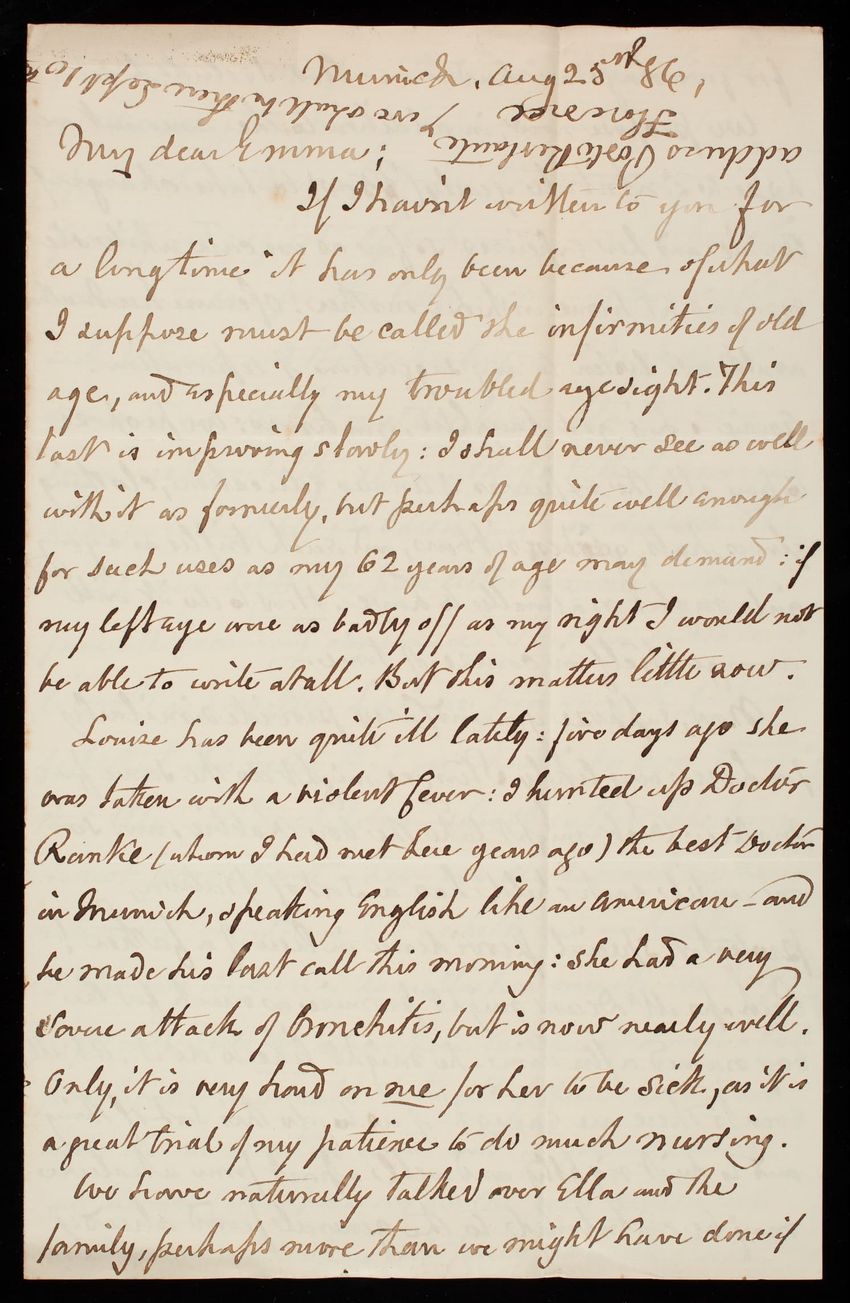 Munich, Aug 23rd, '86,
address Poste Restante
Florence
we shall be there Sept 10th
My dear Emma;
If I havn't written to you for
a long time it has only been because of what
I suppose must be called the infirmities of old
age, and especially my troubled eyesight. This
last is improving slowly: I shall never see as well
with it as formerly, but perhaps quite well enough
for such uses as my 62 years of age may demand: if
my left eye were as badly off as my right I would not
be able to write at all. But this matters little now.
Louise has been quite ill lately: five days ago she
was taken with a violent fever: I hunted up Doctor
Ranke (whom I had met here years ago) the best Doctor
in Munich, speaking English like an American – and
he made his last call this morning: she had a very
severe attack of Bronchitis, but is now nearly well.
Only, it is very hard on me for her to be sick, as it is
a great trial of my patience to do much nursing.
We have naturally talked over Ella and the
family, perhaps more than we might have done if